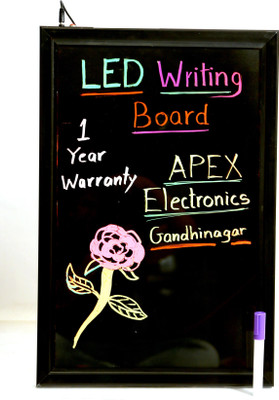 LED Writing
Board
1
Year
Warranty
APEX
Electronics
Gandhinagar